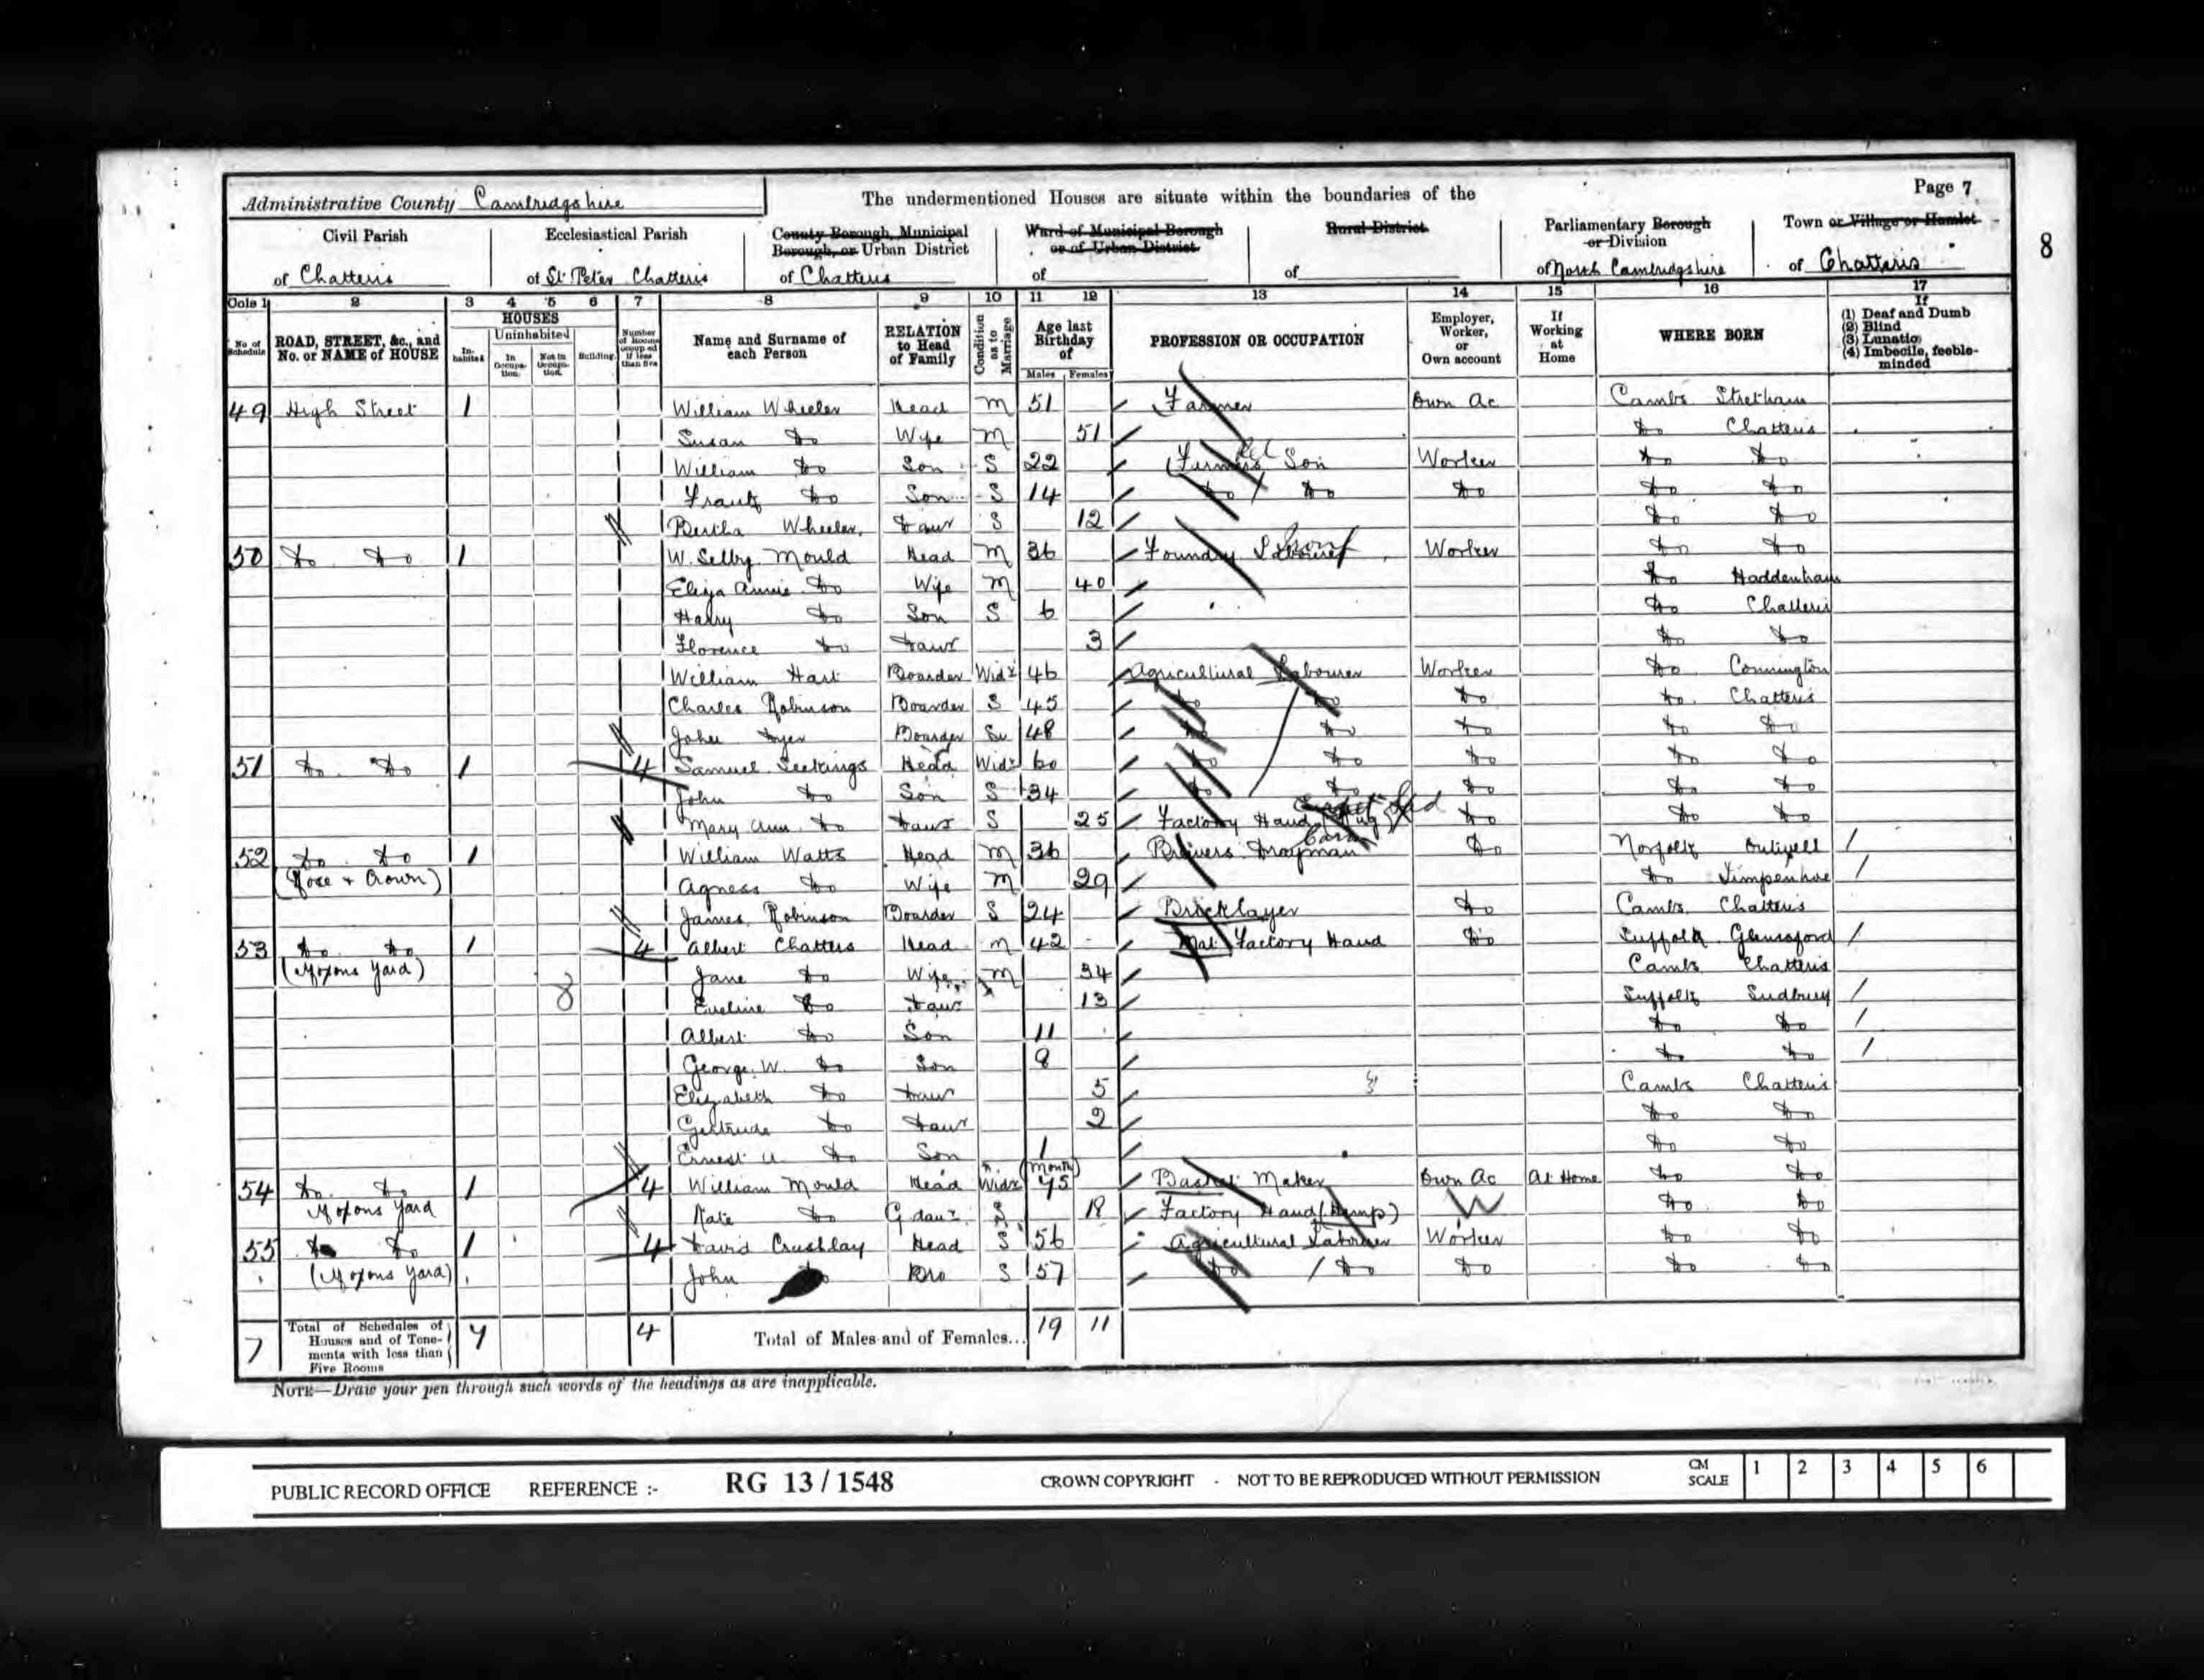 Page 7
Administrative County Cambridgshire The undermentioned Houses are situate within the boundaries of the
Civil Parish Ecclesiastical Parish County Borough, Municipal Borough, or Urban District Ward of Municipal Borough or of Urban District Rural District Parliamentary Borough or Division Town or Village or Hamlet
of Chatteris of St Peter Chatteris of Chatteris of of of North Cambridgshire of Chatteris
8
Cols 1 2 3 4 5 6 7 8 9 10 11 12 13 14 15 16 17
No of Schedule ROAD, STREET, &c., and No. or NAME of HOUSE HOUSES Inhabited Uninhabited In Occupation. Not in Occupation. Building. Number of Rooms occupied if less than five Name and Surname of each Person RELATION to Head of Family Condition as to Marriage Age last Birthday of Males Females PROFESSION OR OCCUPATION Employer, Worker, or Own account If Working at Home WHERE BORN If (1) Deaf and Dumb (2) Blind (3) Lunatic (4) Imbecile, feeble-minded
49 High Street 1 William Wheeler Head M 51 Farmer Own Ac Cambs Stretham
Susan Do Wife M 51 Do Chatteris
William Do Son S 22 Farmers Son Worker Do Do
Frank Do Son S 14 Do Do Do Do Do
Bertha Wheeler Daur S 12 Do Do
50 Do Do 1 W. Selby Mould Head M 36 Foundry Labourer Worker Do Do
Eliza Annie Do Wife M 40 Do Haddenham
Harry Do Son S 6 Do Chatteris
Florence Do Daur 3 Do Do
William Hart Boarder Widr 46 Agricultural Labourer Worker Do Connington
Charles Robinson Boarder S 45 Do Do Do Do Chatteris
John Dyer Boarder 48 Do Do Do Do Do
51 Do Do 1 4 Samuel Seekings Head Widr 60 Do Do Do Do Do
John Do Son S 34 Do Do Do Do Do
Mary Ann Do Daur S 25 Factory Hand Do Do Do
52 Do Do 1 William Watts Head M 36 Brewers Drayman Do Norfolk Outwell /
(Rose + Crown) Agness Do Wife M 29 Do Limpenhoe /
James Robinson Boarder S 24 Bricklayer Do Cambs Chatteris
53 Do Do 1 4 Albert Chatters Head M 42 Mat Factory Hand Do Suffolk Glemsford /
(Moxons Yard) Jane Do Wife M 34 Cambs Chatteris
Eveline Do Daur 13 Suffolk Sudbury /
Albert Do Son 11 Do Do /
George W. Do Son 8 Do Do /
Elizabeth Do Daur 5 Cambs Chatteris
Gertrude Do Daur 2 Do Do
Ernest A Do Son 1 (Month) Do Do
54 Do Do 1 4 William Mould Head Widr 75 Basket Maker Own Ac At Home Do Do
Moxons Yard Kate Do G daur S 18 Factory Hand (Hemp) W Do Do
55 Do Do 1 4 David Crushlay Head S 56 Agricultural Labourer Worker Do Do
(Moxons Yard) John Do Bro S 57 Do Do Do Do Do
7 Total of Schedules of Houses and of Tenements with less than Five Rooms 7 4 Total of Males and of Females... 19 11
NOTE—Draw your pen through such words of the headings as are inapplicable.
PUBLIC RECORD OFFICE REFERENCE :- RG 13 / 1548 CROWN COPYRIGHT - NOT TO BE REPRODUCED WITHOUT PERMISSION CM SCALE 1 2 3 4 5 6